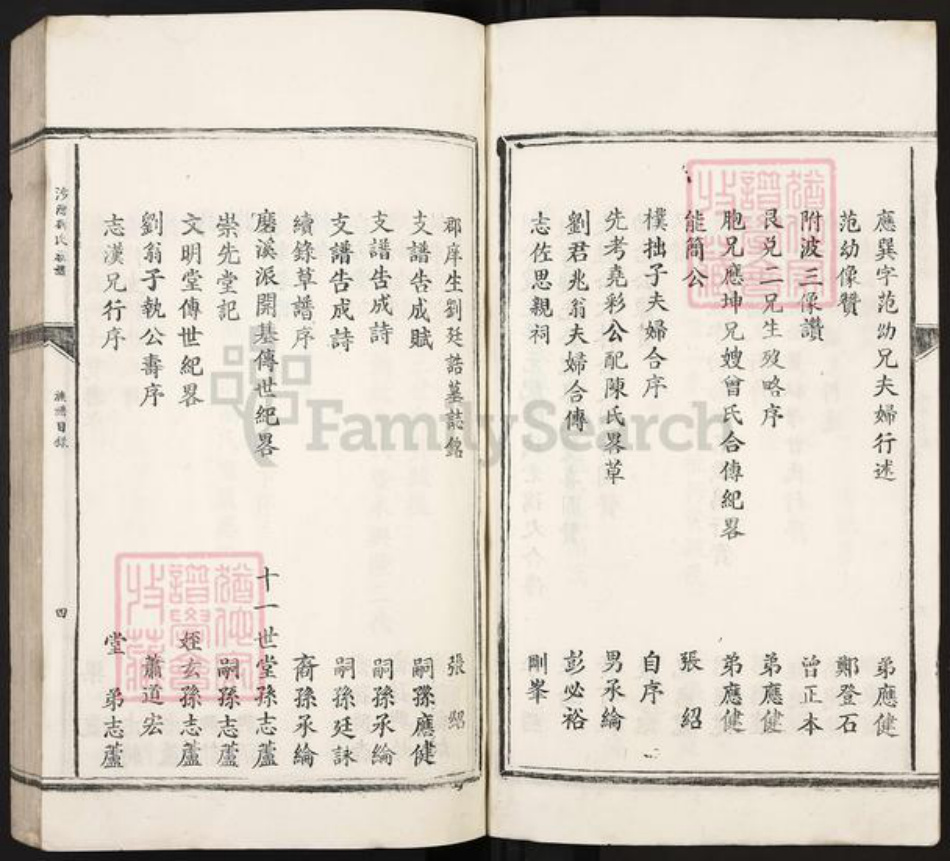 應巽字范幼兄夫婦行述 弟應健
范幼像贊 鄭登石
附波三像讚 曾正本
艮兑二兄生歿略序 弟應健
胞兄應坤兄嫂曾氏合傳紀畧 弟應健
能簡公 張紹
樸拙子夫婦合序 自序
先考堯彩公配陳氏畧草 男承綸
劉君兆翁夫婦合傳 彭必裕
志佐思親祠 剛峯
郡庠生劉廷誥墓誌銘 張紹
支譜告成賦 嗣孫應健
支譜告成詩 嗣孫承綸
支譜告成詩 嗣孫廷訣
續錄草譜序 裔孫承綸
磨溪派開基傳世紀畧 十一世堂孫志蘆
崇先堂記 嗣孫志蘆
文明堂傳世紀畧 姪玄孫志蘆
劉翁子執公壽序 蕭道宏
志漢兄行序 堂弟志蘆
劉氏族譜
族譜目錄
四
FamilySearch